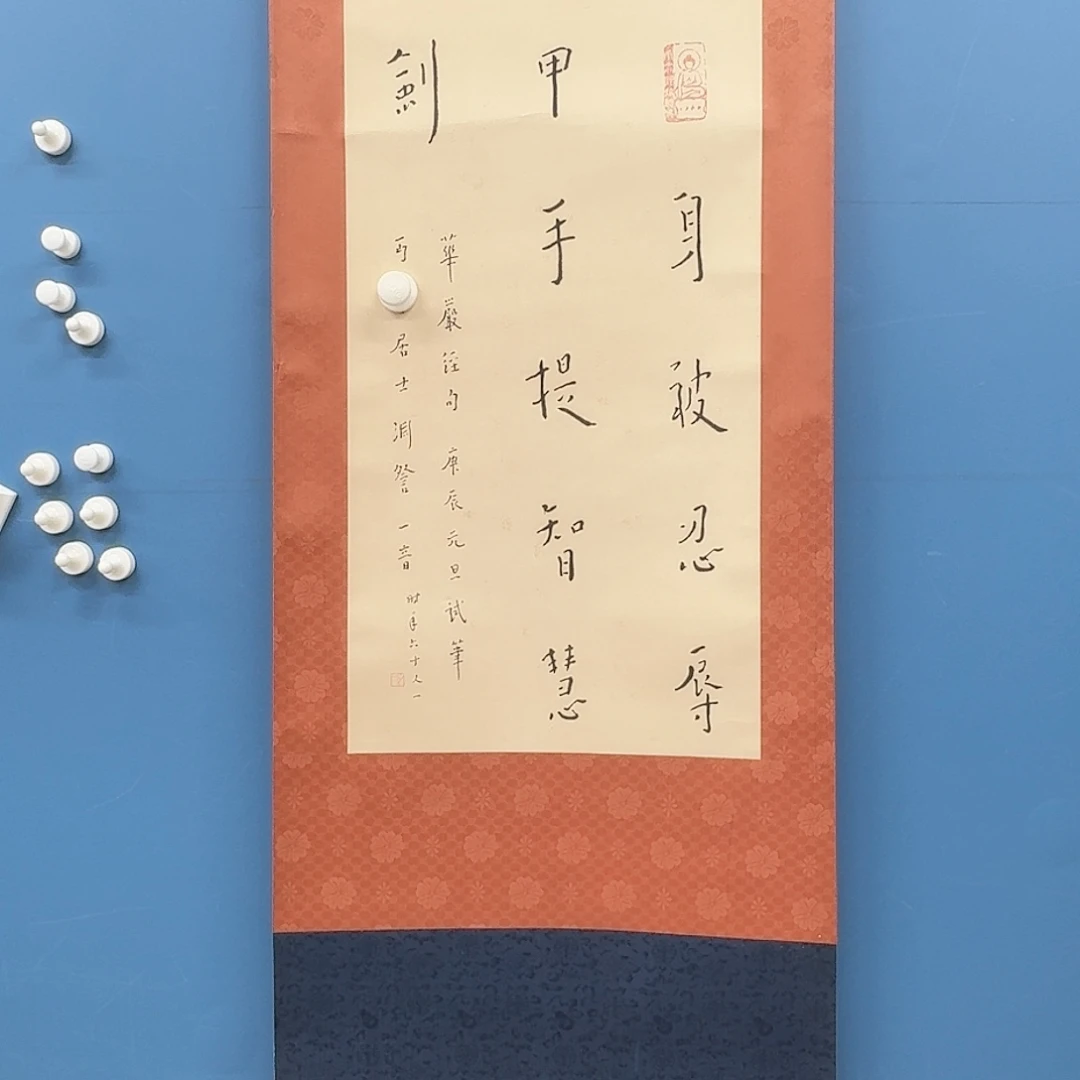 身被忍辱
甲手提智慧
劍
華嚴經句 庚辰元旦試筆
丏 居士淵詧 一音 时年六十又一